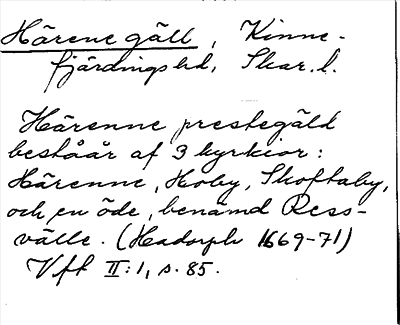 Härene gäll, Kinne-
fjärdings hd, Skar. l.
Härenne prestegäld
beståår af 3 kyrkior:
Härenne, Hoby, Skoftaby,
och en öde, benämd Ress-
välle. (Hadorph 1669-71)
Vft II:1, s. 85.